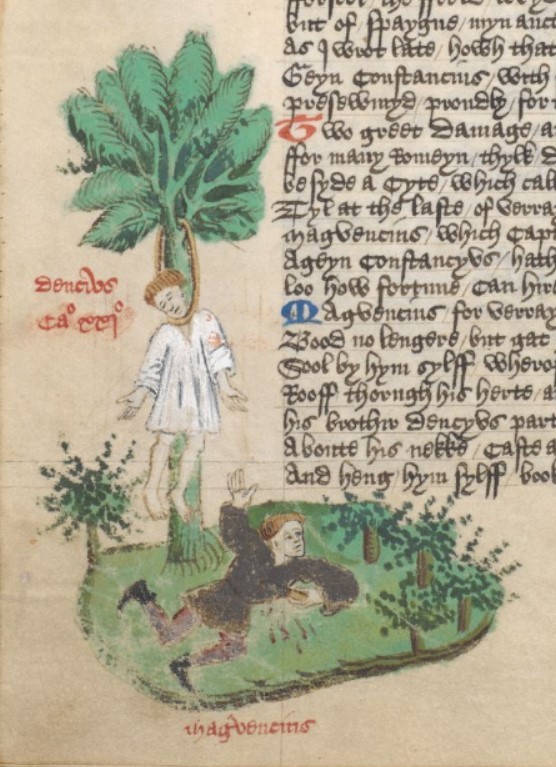 but of Spaygne, myn auct
as I wrot late, howh that
Geyn Constancius, with
presewmyd, proudly, for
Two greet damage, a
ffor many Romeyn, thylk d
besyde a Cyte, which cal
Tyl at the laste, of verra
magvencius, which Capt
Ageyn Constancyvs, hath
loo how fortune, Can hir
Magvencius, for verray
Bood no lengere, but gat
Sool by hym sylff, wheroff
Rooff thorugh his herte, a
his brothir dencyvs, part
Aboute his nekke, Caste a
And heng, hym sylff, book
dencivs
Cao xxjo
magvencius